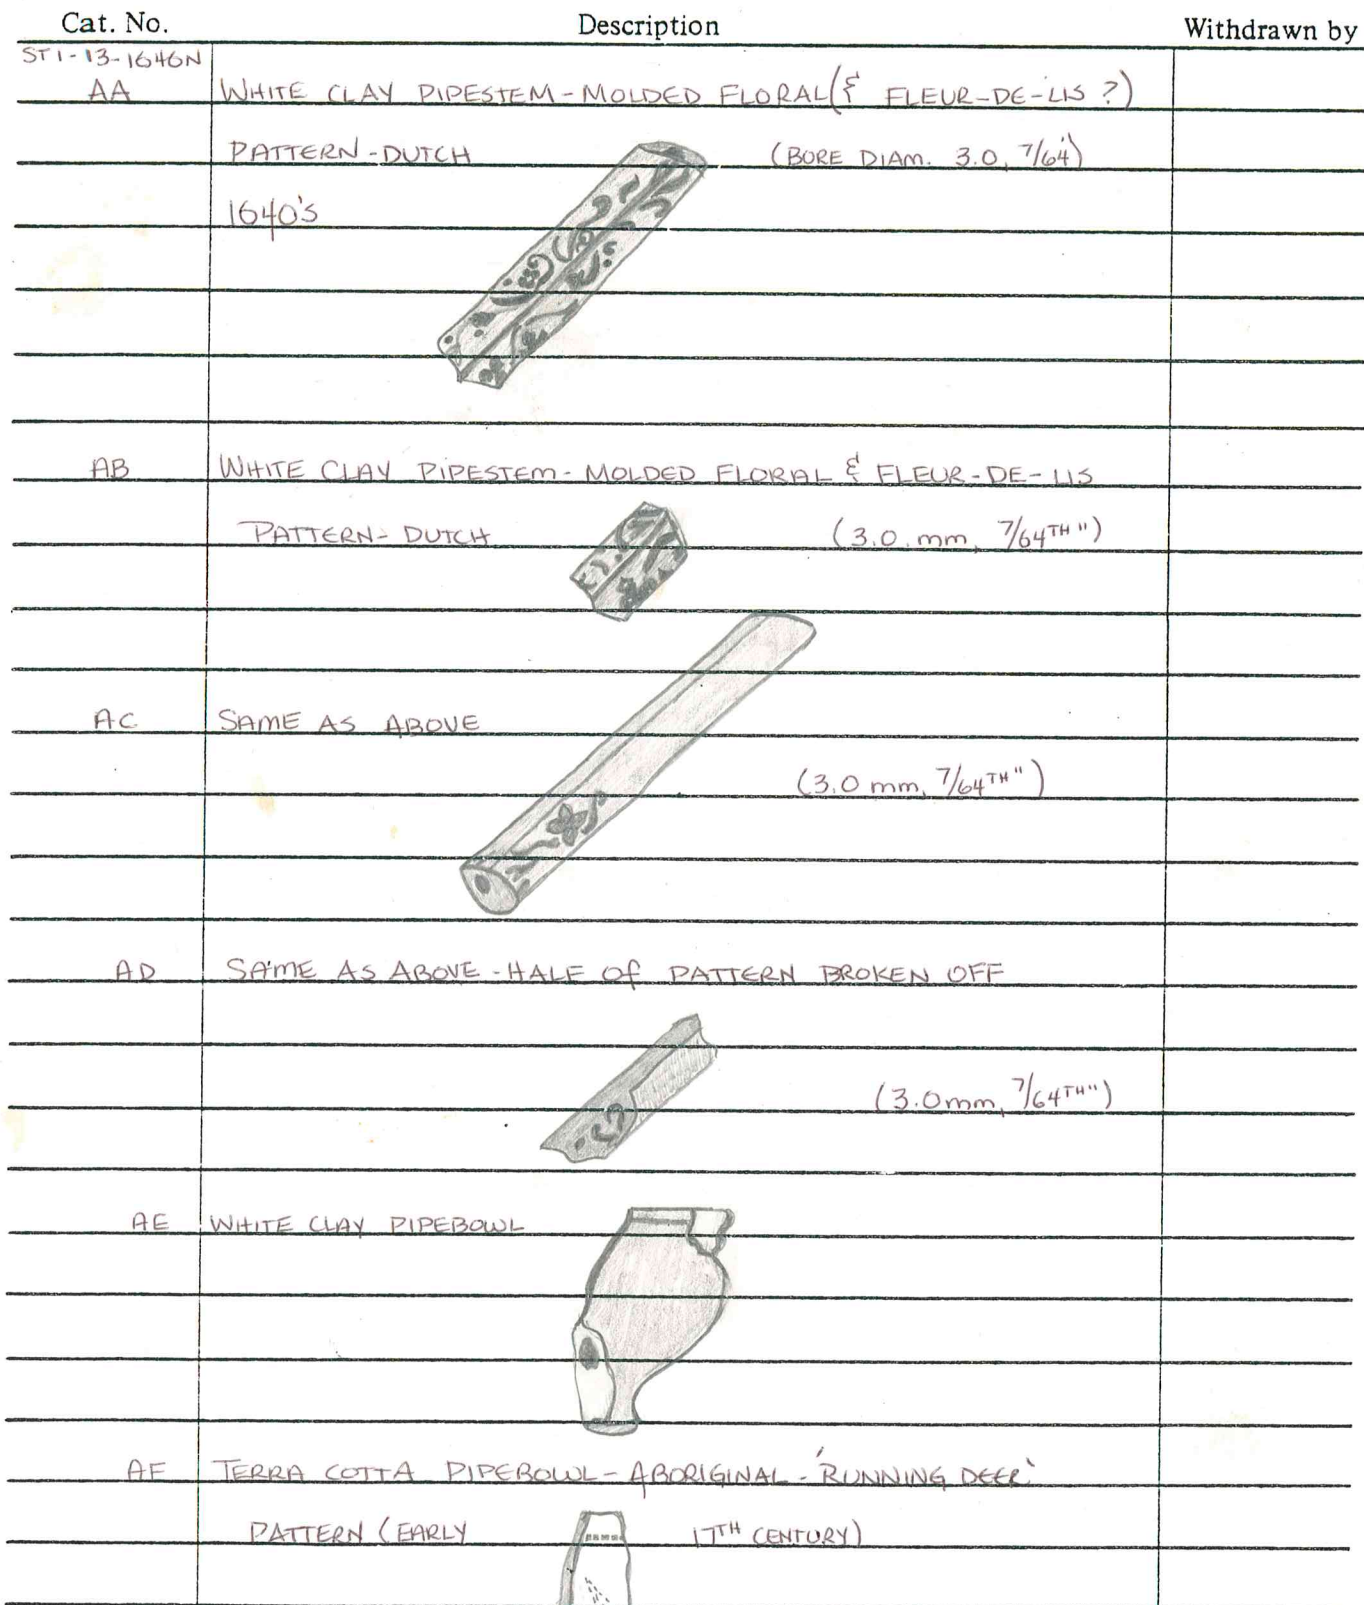 Cat. No. Description Withdrawn by
ST1-13-1646N
AA WHITE CLAY PIPESTEM-MOLDED FLORAL (& FLEUR-DE-LIS ?)
PATTERN-DUTCH (BORE DIAM. 3.0, 7/64")
1640's
AB WHITE CLAY PIPESTEM-MOLDED FLORAL & FLEUR-DE-LIS
PATTERN-DUTCH (3.0 mm, 7/64TH")
AC SAME AS ABOVE
(3.0 mm, 7/64TH")
AD SAME AS ABOVE-HALF Of PATTERN BROKEN OFF
(3.0mm, 7/64TH")
AE WHITE CLAY PIPEBOWL
AF TERRA COTTA PIPEBOWL-ABORIGINAL-'RUNNING DEER'
PATTERN (EARLY 17TH CENTURY)